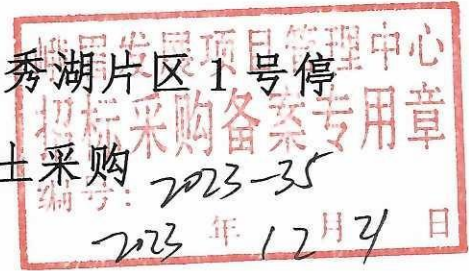 峨眉发展项目管理中心
秀湖片区1号停
招标采购备案专用章
土采购
编号: 2023-35
2023 年 12 月 21 日